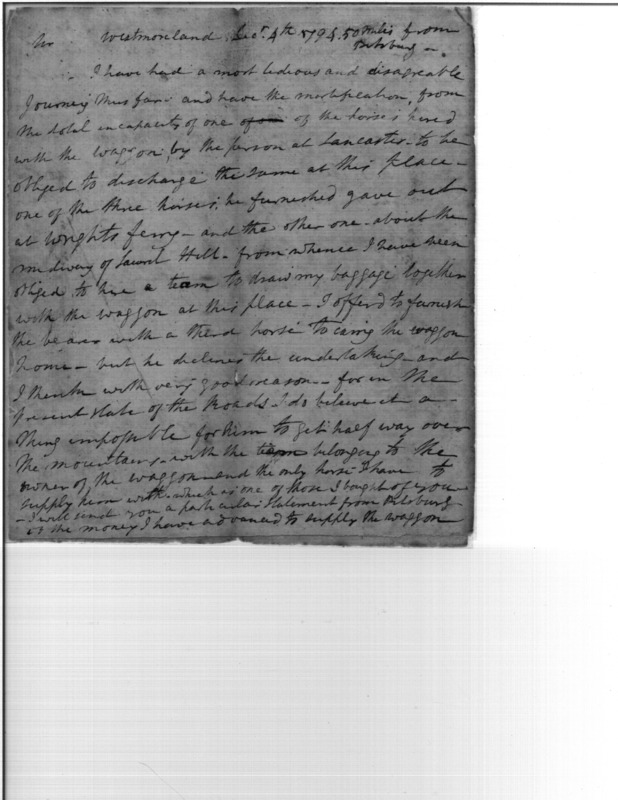 Sir Westmoreland Decr. 4th 1794. 50 miles from
Pitsburg –
I have had a most tedious and disagreable
Journey thus farr and have the mortification, from
the total incapacity of one of the horses hired
with the waggon, by the person at Lancaster – to be
obliged to discharge the same at this place –
one of the three horses, he furnished gave out
at Wrights ferry – and the other one – about the
midway of Laurel Hill – from whence I have been
obliged to hire a team to draw my baggage together
with the waggon at this place – I offerd to furnish
the bearer with a therd horse to carry the waggon
home – but he declines the undertaking – and
I think with very good reason – for in the
present state of the Roads – I do believe it a
thing impossible for him to get half way over
the mountains – with the team belonging to the
owner of the waggon – and the only horse I have to
supply him with – which is one of those I bought of you
– I will send you a particular Statement from Pitsburg
of the money I have advanced to supply the waggon